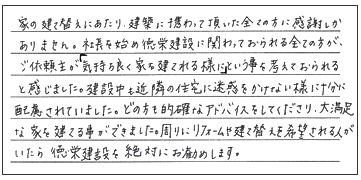 家の建て替えにあたり、建築に携わって頂いた全ての方に感謝しか
ありません。社長を始め徳栄建設に関わっておられる全ての方が、
ご依頼主が「気持ち良く家を建てれる様に」という事を考えておられる
と感じました。建設中も近隣の住宅に迷惑をかけない様に十分に
配慮されていました。どの方も的確なアドバイスをしてくださり、大満足
な家を建てる事ができました。周りにリフォームや建て替えを希望される人が
いたら徳栄建設を絶対にお勧めします。